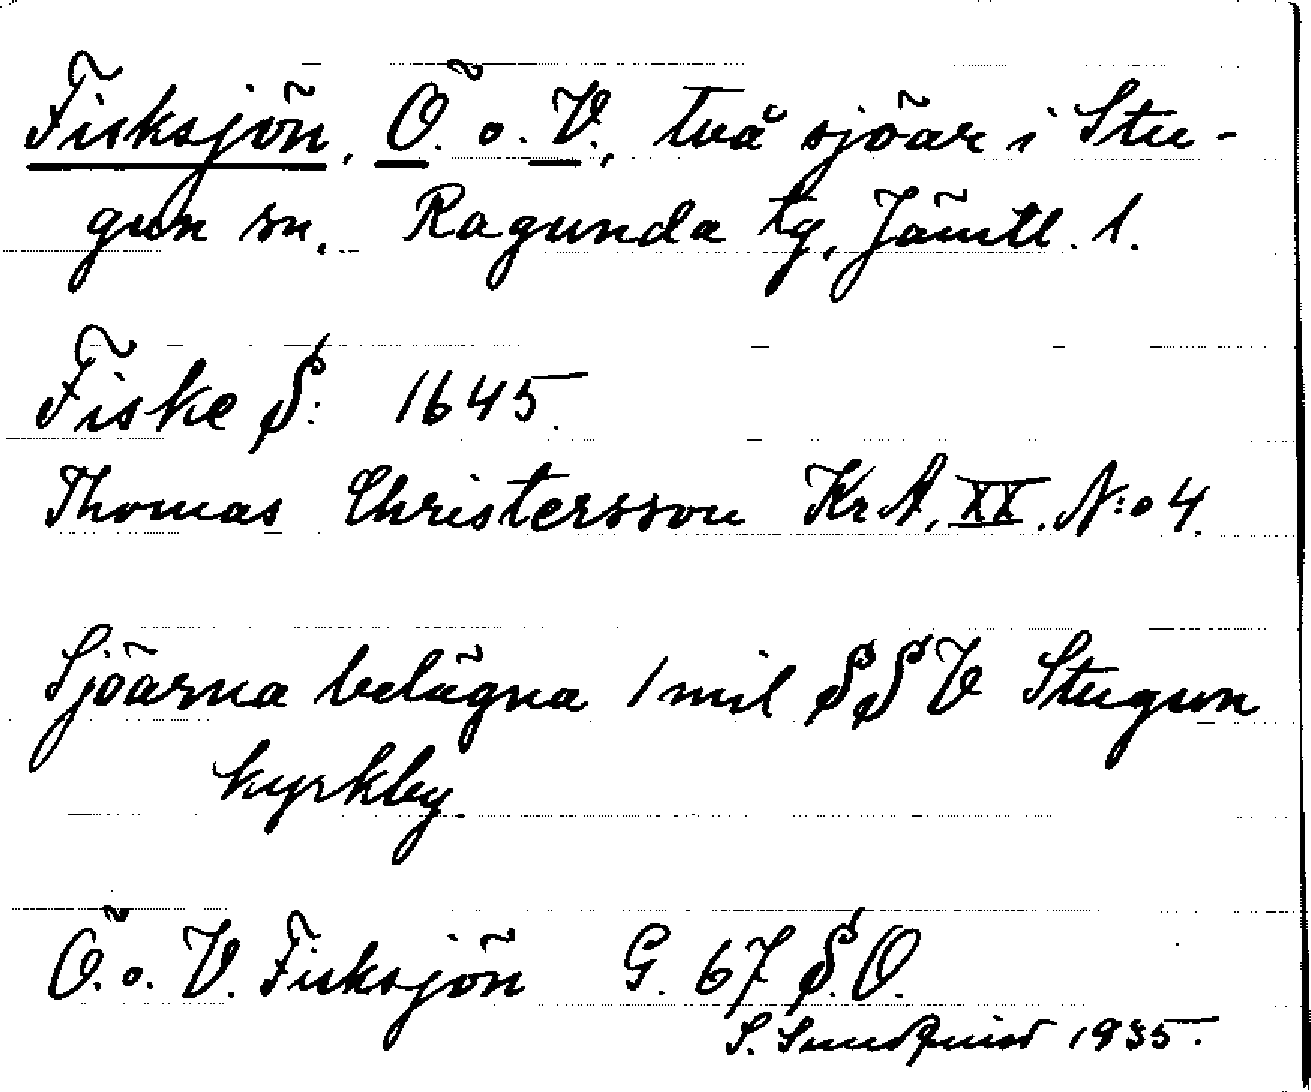 Fisksjön, Ö. o. V., två sjöar i Stu-
gun sn. Ragunda tg, Jämtl. l.
Fiske S: 1645.
Thomas Christersson KrA. XX. N:o 4.
Sjöarna belägna 1 mil SSV Stugun
kyrkby.
Ö. o. V. Fisksjön G. 67 S.O.
S. Sundquist 1935.